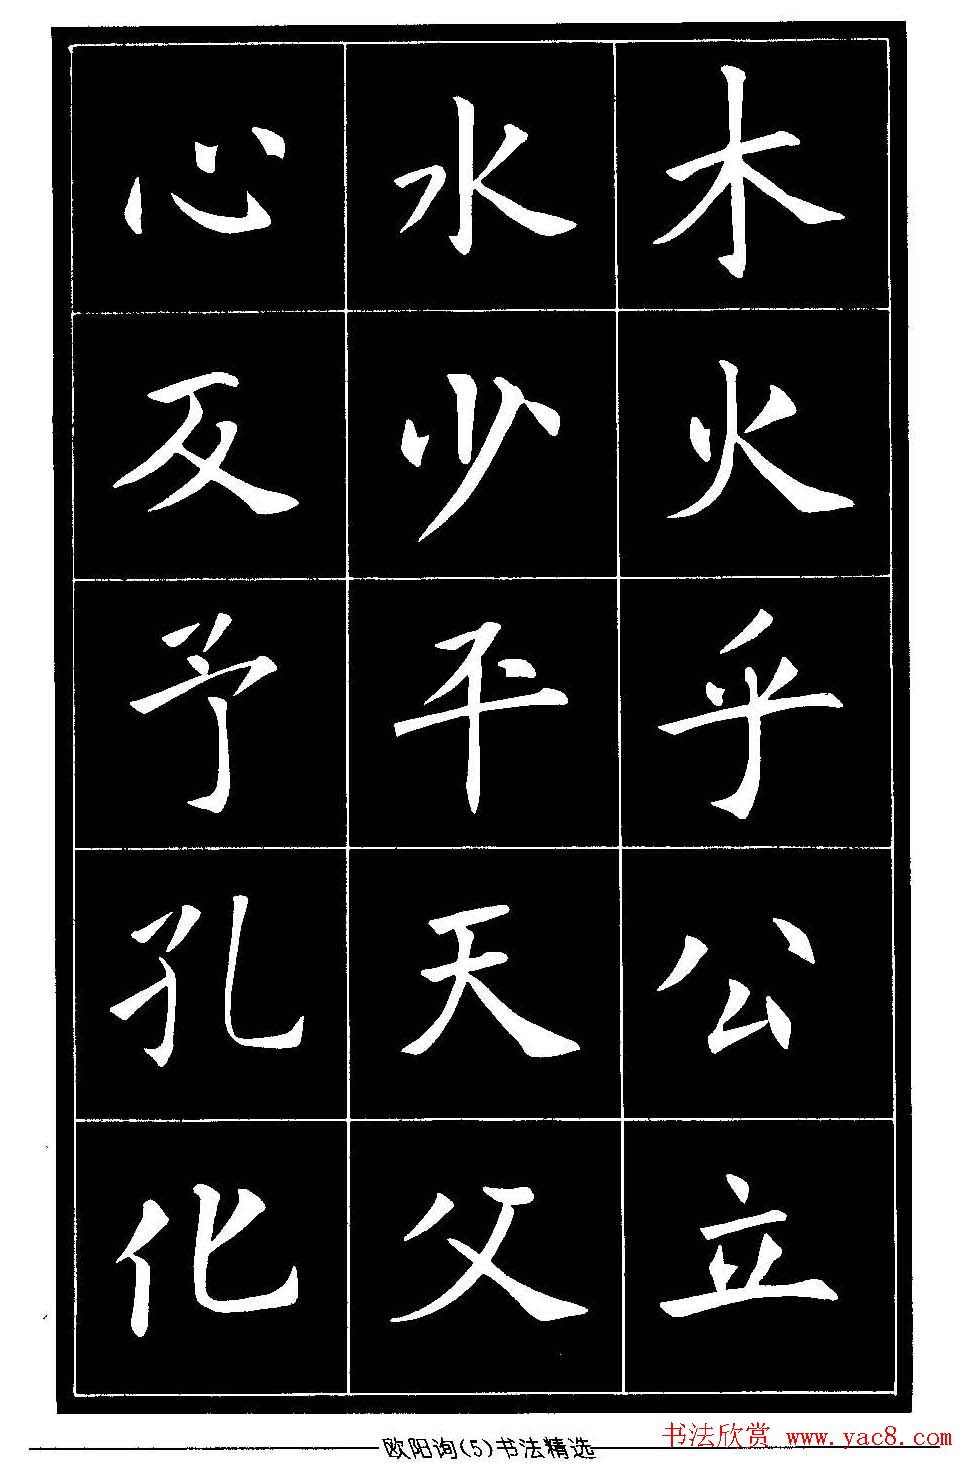 木火乎公立
水少平天父
心反予孔化
欧阳询(5)书法精选
书法欣赏 www.yac8.com